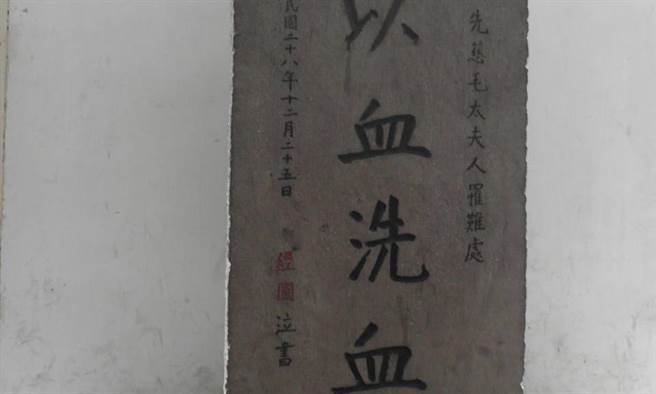 先慈毛太夫人罹難處
以血洗血
民國二十八年十二月二十五日
經國 泣書